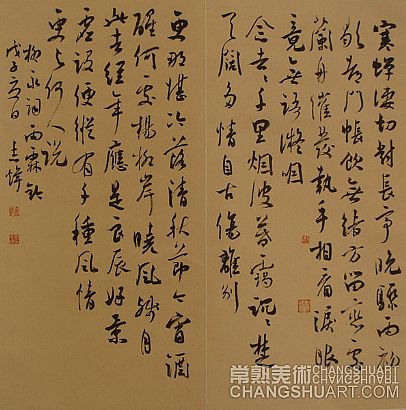 寒蟬凄切對長亭晚驟雨初
歇都門帳飲無緒方留戀處
蘭舟催發執手相看淚眼
竟無語凝咽
念去去千里烟波暮靄沉沉楚
天闊多情自古傷離別
更那堪冷落清秋節今宵酒
醒何處楊柳岸曉風殘月
此去經年應是良辰好景
虛設便縱有千種風情
更與何人說
柳永詞雨霖鈴
戊子夏日
常熟美術CHANGSHUART
CHANGSHUART.COM